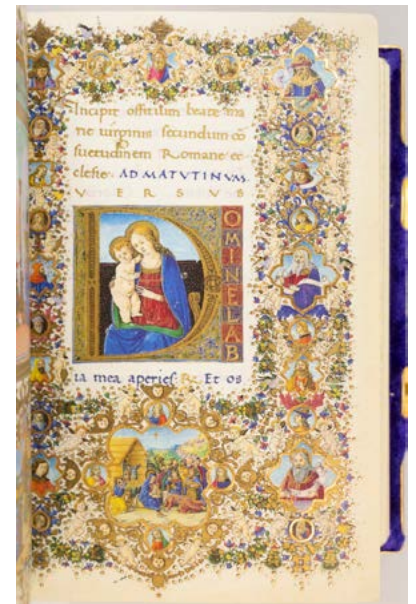 Incipit offitium beate ma
rie virginis secundum cō
suetudinem Romane ec
clesie. AD MATUTINVM.
VERSVS
DOMINE LAB
ia mea aperies. R. Et os